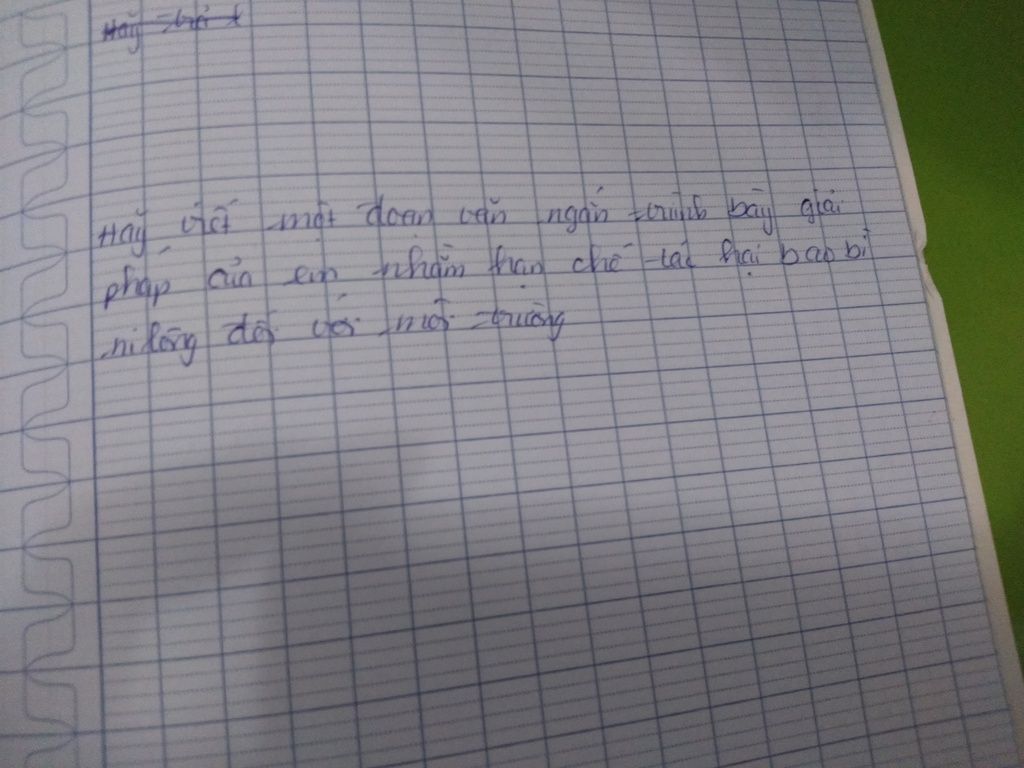 Hãy
Hãy viết một đoạn văn ngắn trình bày giải
pháp của em nhằm hạn chế tác hại bao bì
ni lông đối với môi trường